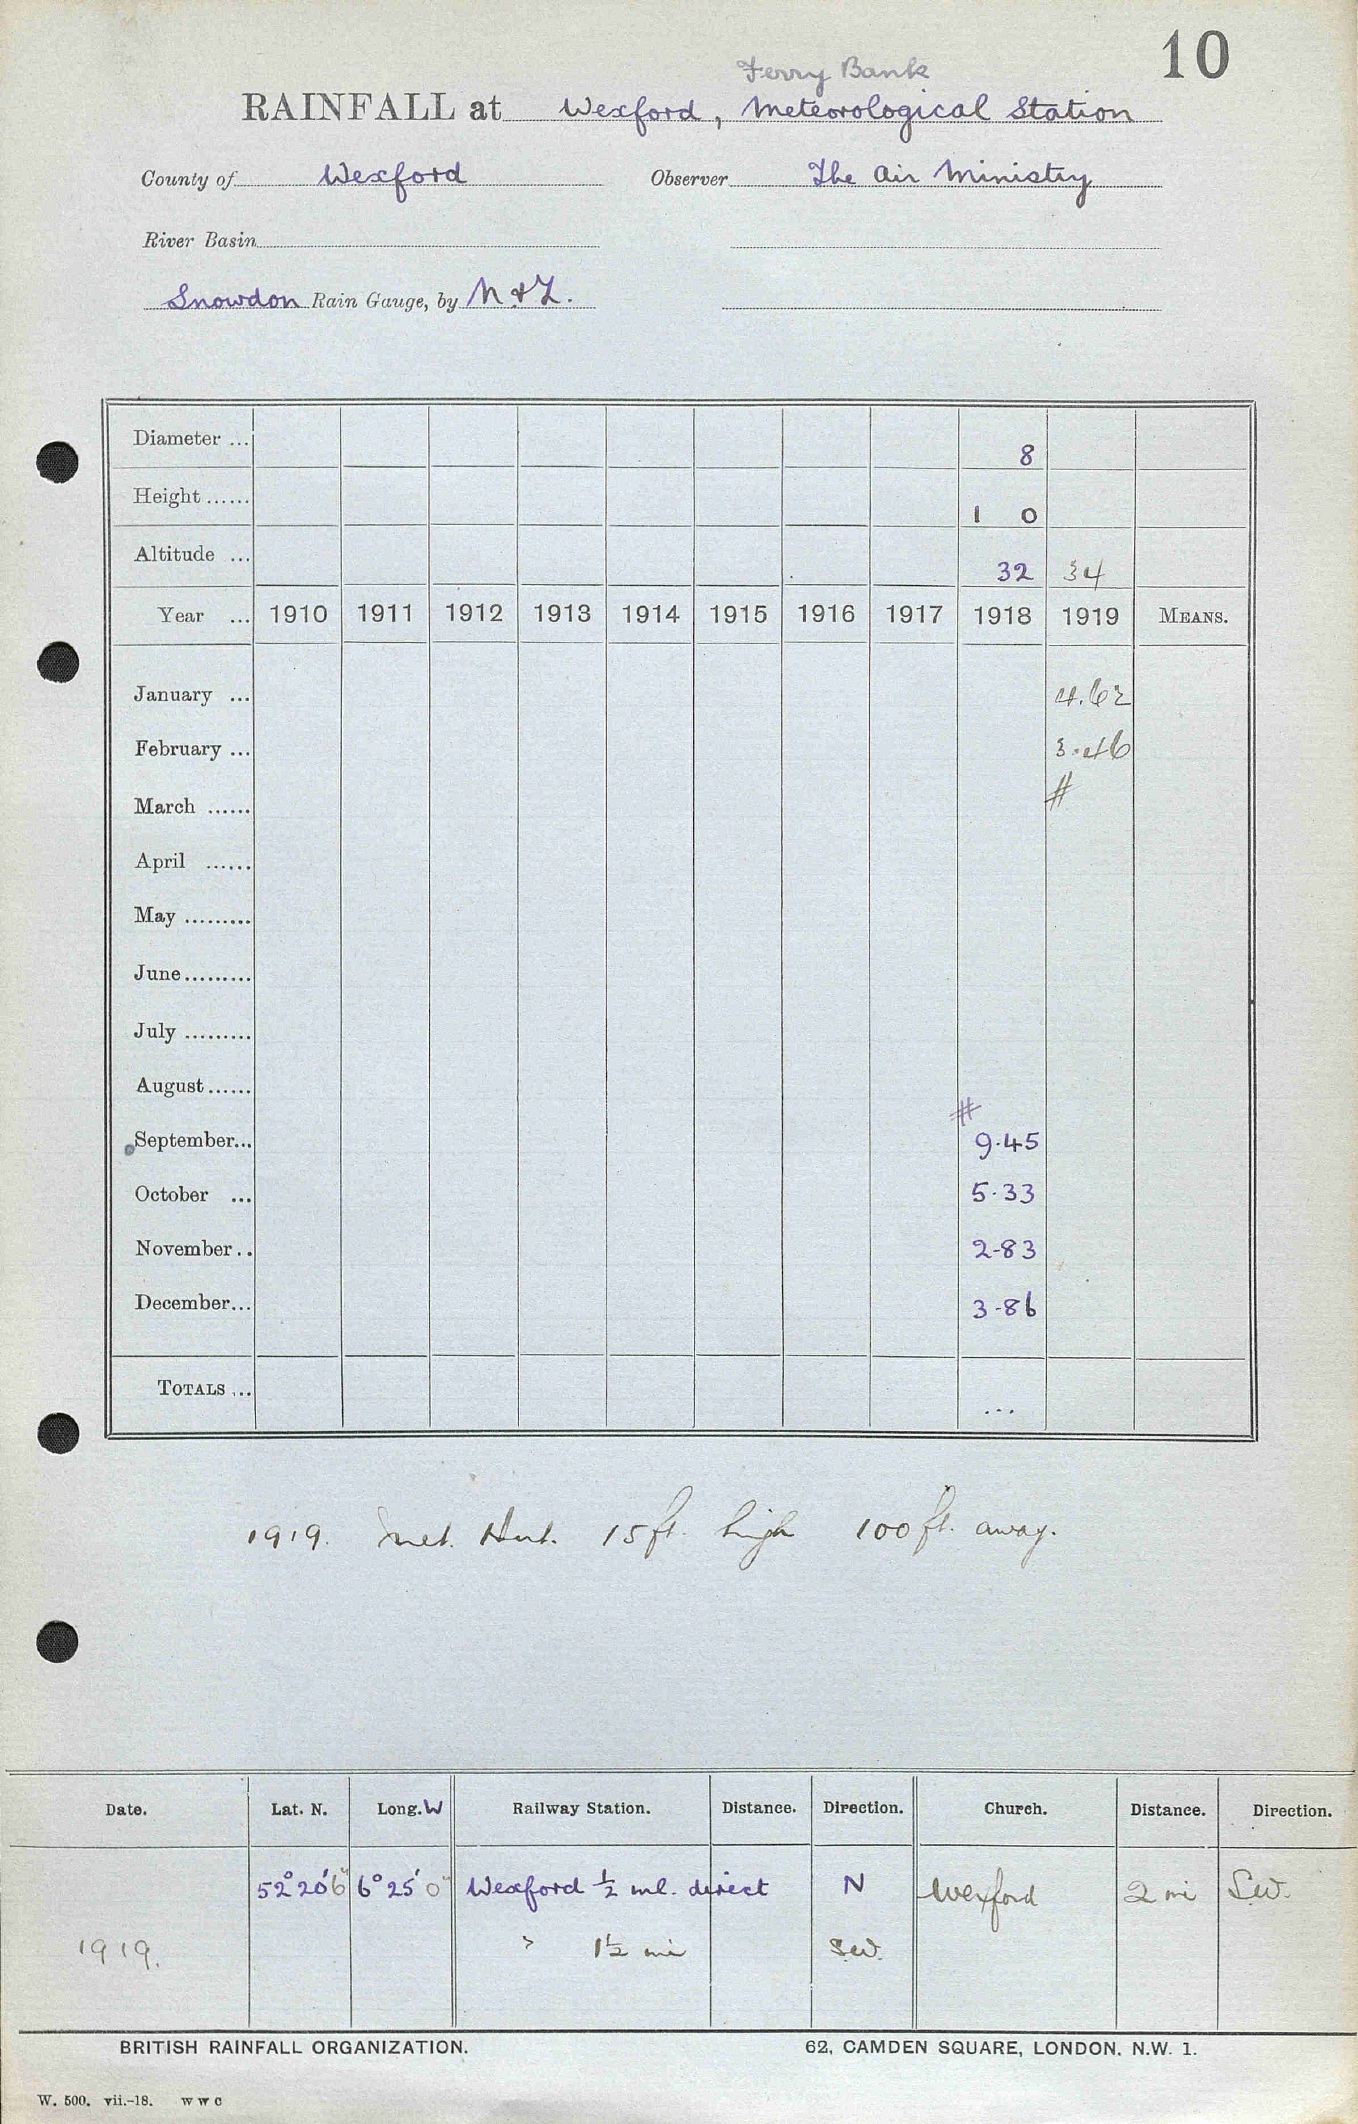 10
Ferry Bank
RAINFALL at Wexford, Meteorological Station
County of Wexford Observer The Air Ministry
River Basin
Snowdon Rain Gauge, by N & Z.
Diameter ... 8
Height ...... 1 0
Altitude ... 32 34
Year ... 1910 1911 1912 1913 1914 1915 1916 1917 1918 1919 MEANS.
January ... 4.62
February ... 3.46
March ...... #
April ......
May .........
June.........
July .........
August......
#
September... 9.45
October ... 5.33
November.. 2.83
December... 3.86
TOTALS ... ...
1919. Met. Hut. 15 ft. high 100 ft. away.
Date. Lat. N. Long. W Railway Station. Distance. Direction. Church. Distance. Direction.
52° 20' 6" 6° 25' 0" Wexford ½ ml. direct N Wexford 2 mi SW.
1919. " 1½ mi SW.
BRITISH RAINFALL ORGANIZATION. 62, CAMDEN SQUARE, LONDON. N.W. 1.
W. 500. vii.-18. w w c